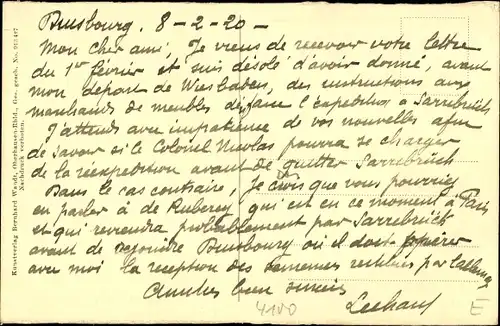 Duisbourg. 8-2-20-
Mon cher ami, Je viens de recevoir votre lettre
du 1er février et suis désolé d'avoir donné, avant
mon départ de Wiesbaden, des instructions aux
marchands de meubles de faire l'expédition à Sarrebrück
J'attends avec impatience de vos nouvelles afin
de savoir si le Colonel Nicolas pourra se charger
de la réexpédition avant de quitter Sarrebrück
Dans le cas contraire, je crois que vous pourriez
en parler à de qui est en ce moment à Paris
et qui reviendra probablement par Sarrebrück
avant de rejoindre Duisbourg où il doit opérer
avec moi la réception des fameuses par l'allemagne
Amitiés bien sincères
4100
E
Kunstverlag Bernhard Wandt, Oberhausen-Rhld., Ges. gesch. No.
Nachdruck verboten.